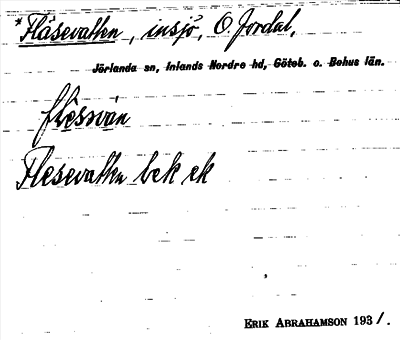 *Fläsevatten, insjö, O. Jordal,
Jörlanda sn, Inlands Nordre hd, Göteb. o. Bohus län.
flèssván
Flesevatten bek ek
ERIK ABRAHAMSON 1931.